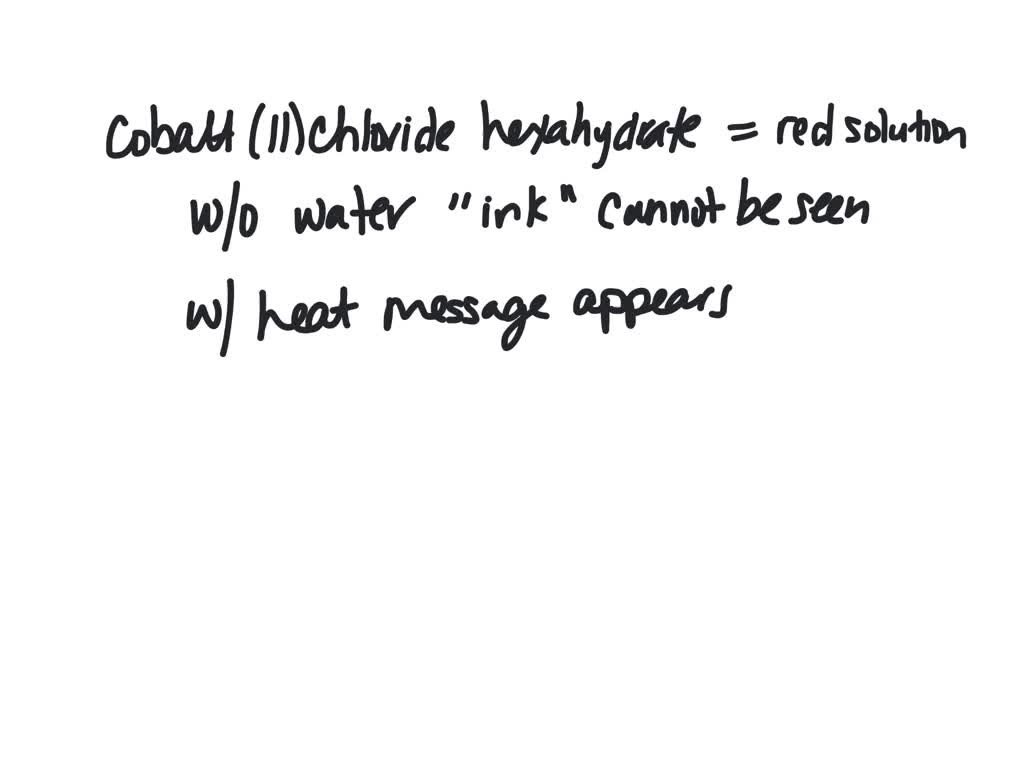 Cobalt (II) chloride hexahydrate = red solution
w/o water "ink" cannot be seen
w/ heat message appears